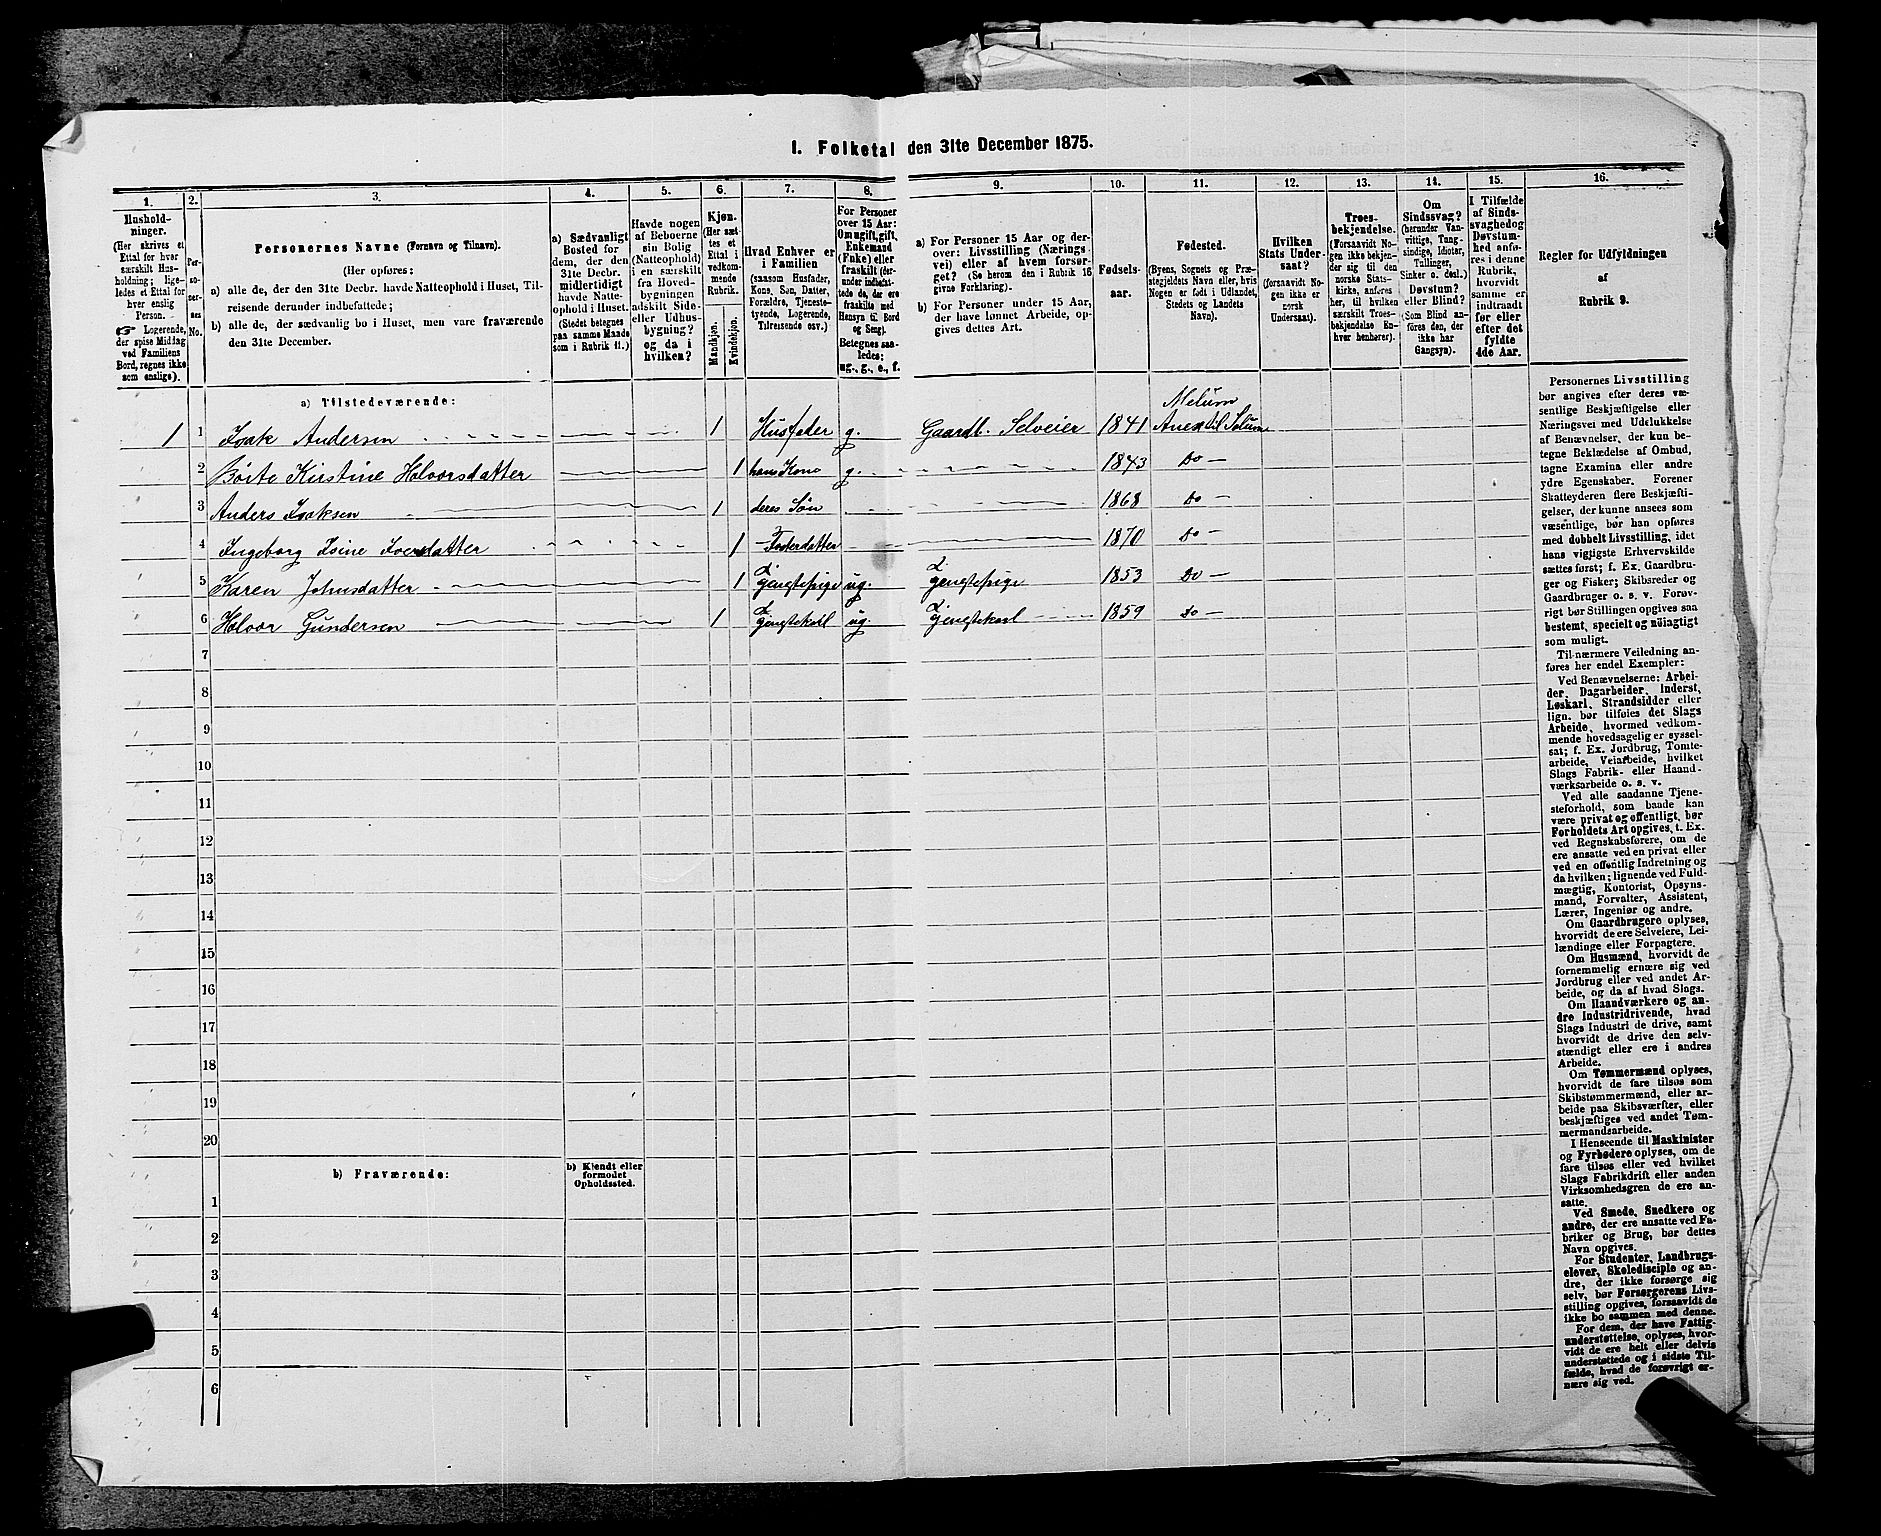 I. Folketal den 31te December 1875.
1. 2. 3. 4. 5. 6. 7. 8. 9. 10. 11. 12. 13. 14. 15. 16.
Hushold-
ninger.
(Her skrives et
Ettal for hver
særskilt Hus-
holdning; lige-
ledes et Ettal for
hver enslig
Person.
☞ Logerende,
der spise Middag
ved Familiens
Bord, regnes ikke
som enslige).
Per-
so-
ner-
nes
No.
Personernes Navne (Fornavn og Tilnavn).
(Her opføres:
a) alle de, der den 31te Decbr. havde Natteophold i Huset, Til-
reisende derunder indbefattede;
b) alle de, der sædvanlig bo i Huset, men vare fraværende
den 31te December.
a) Sædvanligt
Bosted for
dem, der den
31te Decbr.
midlertidigt
havde Natte-
ophold i Huset.
(Stedet betegnes
paa samme Maade
som i Rubrik 11.)
Havde nogen
af Beboerne
sin Bolig
(Natteophold)
i en særskilt
fra Hoved-
bygningen
adskilt Side-
eller Udhus-
bygning?
og da i
hvilken?
Kjøn.
(Her sæt-
tes et
Ettal i
vedkom-
mende
Rubrik.
Mandkjøn.
Kvindekjøn.
Hvad Enhver er
i Familien
(saasom Husfader,
Kone, Søn, Datter,
Forældre, Tjeneste-
tyende, Logerende,
Tilreisende osv.)
For Personer
over 15 Aar:
Om ugift, gift,
Enkemand
(Enke) eller
fraskilt (der-
under indbefat-
tede de, der ere
fraskilte med
Hensyn til Bord
og Seng).
Betegnes saa-
ledes:
ug., g., e., f.
a) For Personer 15 Aar og der-
over: Livsstilling (Nærings-
vei) eller af hvem forsør-
get? (Se herom den i Rubrik 16
givne Forklaring).
b) For Personer under 15 Aar,
der have lønnet Arbeide, op-
gives dettes Art.
Fødsels-
aar.
Fødested.
(Byens, Sognets og Præ-
stegjeldets Navn eller, hvis
Nogen er født i Udlandet,
Stedets og Landets
Navn).
Hvilken
Stats Under-
saat?
(forsaavidt No-
gen ikke er
norsk
Undersaat).
Troes-
bekjendelse.
(Forsaavidt No-
gen ikke bekjen-
der sig til den
norske Stats-
kirke, anføres
her, til hvilken
særskilt Troes-
bekjendelse En-
hver henhører).
Om
Sindssvag?
(herunder Van-
vittige, Tung-
sindige, Idioter,
Tullinger,
Sinker o. desl.)
Døvstum?
eller Blind?
(Som Blind an-
føres den, der
ikke har
Gangsyn).
I Tilfælde
af Sinds-
svaghed og
Døvstum-
hed anfø-
res i denne
Rubrik,
hvorvidt
samme er
indtraadt
før eller
efter det
fyldte
4de Aar.
Regler for Udfyldningen
af
Rubrik 9.
a) Tilstedeværende:
1 1 Isak Andersen 1 Husfader g. Gaardb. Selveier 1841 Melum Anex til Solum
2 Böite Kirstine Halvorsdatter 1 hans Kone g. 1843 Do
3 Anders Isaksen 1 deres Sön 1868 Do
4 Ingeborg Isine Iversdatter 1 Fosterdatter 1870 Do
5 Karen Johnsdatter 1 Tjenestepige ug. Tjenestepige 1853 Do
6 Halvor Gundersen 1 Tjenestekarl ug. Tjenestekarl 1859 Do
7
8
9
10
11
12
13
14
15
16
17
18
19
20
b) Fraværende:
b) Kjendt eller
formodet
Opholdssted.
1
2
3
4
5
6
Personernes Livsstilling
bør angives efter deres væ-
sentlige Beskjæftigelse eller
Næringsvei med Udelukkelse
af Benævnelser, der kun be-
tegne Beklædelse af Ombud,
tagne Examina eller andre
ydre Egenskaber. Forener
Skatteyderen flere Beskjæfti-
gelser, der kunne ansees som
væsentlige, bør han opføres
med dobbelt Livsstilling, idet
hans vigtigste Erhvervskilde
sættes først; f. Ex. Gaardbru-
ger og Fisker; Skibsreder og
Gaardbruger o. s. v. Forøv-
rigt bør Stillingen opgives saa
bestemt, specielt og nöiagtigt
som muligt.
Til nærmere Veiledning an-
føres her endel Exempler:
Ved Benævnelserne: Arbei-
der, Dagarbeider, Inderst,
Løskarl, Strandsidder eller
lign. bør tilføies det Slags
Arbeide, hvormed vedkom-
mende hovedsagelig er syssel-
sat; f. Ex. Jordbrug, Tomte-
arbeide, Veiarbeide, hvilket
Slags Fabrik- eller Haand-
værksarbeide o. s. v.
Ved alle saadanne Tjene-
steforhold, som baade kan
være privat og offentligt, bør
Forholdets Art opgives, t. Ex.
ved Regnskabsførere, om de
ere ansatte ved en privat eller
ved en offentlig Indretning og
da hvilken; lignende ved Fuld-
mægtig, Kontorist, Opsyns-
mand, Forvalter, Assistent,
Lærer, Ingeniør og andre.
Om Gaardbrugere oplyses,
hvorvidt de ere Selveiere, Lei-
lændinge eller Forpagtere.
Om Husmænd, hvorvidt de
fornemmelig ernære sig ved
Jordbrug eller ved andet Ar-
beide, og da af hvad Slags.
Om Haandværkere og an-
dre Industridrivende, hvad
Slags Industri de drive, samt
hvorvidt de drive den selv-
stændigt eller ere i andres
Arbeide.
Om Tømmermænd oplyses,
hvorvidt de fare tilsøs som
Skibstømmermænd, eller ar-
beide paa Skibsværfter, eller
beskjæftiges ved andet Tøm-
mermandsarbeide.
I Henseende til Maskinister
og Fyrbødere oplyses, om de
fare tilsøs eller ved hvilket
Slags Fabrikdrift eller anden
Virksomhedsgren de ere an-
satte.
Ved Smede, Snedkere og
andre, der ere ansatte ved Fa-
briker og Brug, bør dettes
Navn opgives.
For Studenter, Landbrugs-
elever, Skoledisciple og an-
dre, der ikke forsørge sig
selv, bør Forsørgerens Livs-
stilling opgives, forsaavidt de
ikke bo sammen med denne.
For dem, der have Fattig-
understøttelse, oplyses, hvor-
vidt de ere helt eller delvis
understøttede og i sidste Til-
fælde, hvad de forøvrigt er-
nære sig ved.